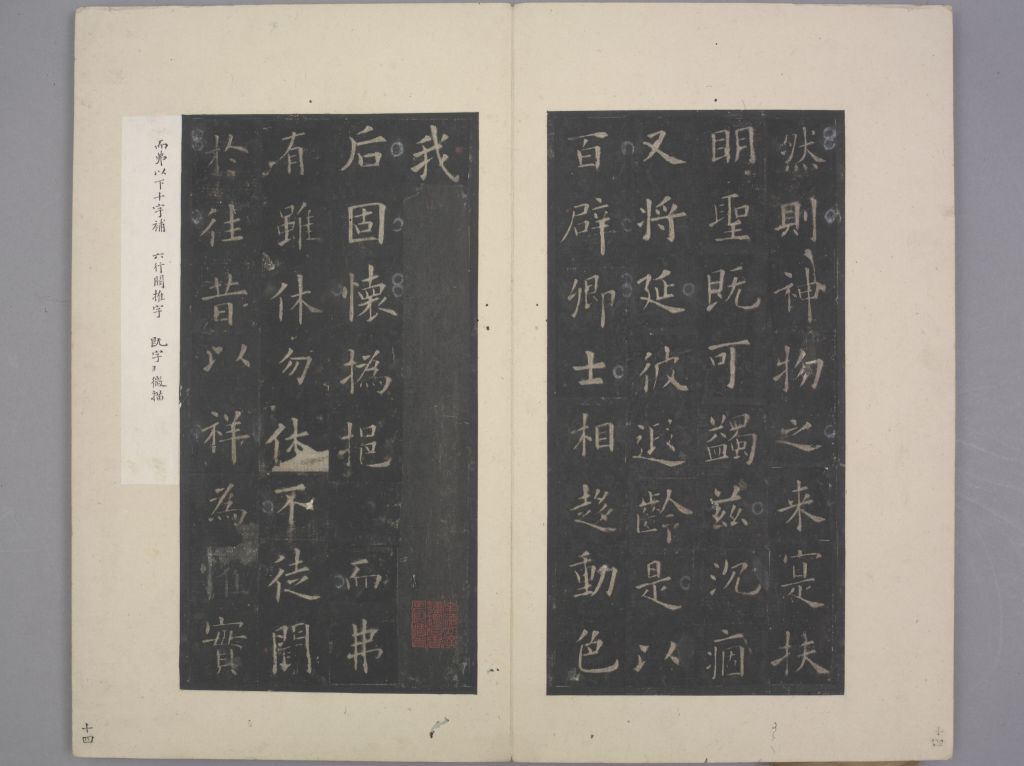 然則神物之来寔扶
明聖既可蠲兹沉痼
又将延彼遐齡是以
百辟卿士相趍動色
我
后固懷撝挹 而弗
有雖休勿休不徒聞
於往昔以祥為懼實
而弗以下十字補 六行闕推字 既字 微描
十四
十四